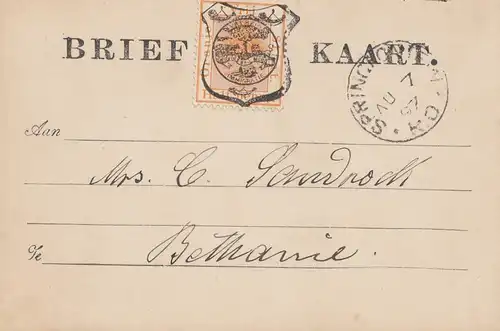 BRIEF KAART.
AU 7 97
Aan
Mrs. C. Sandrock
te
Bethanie.